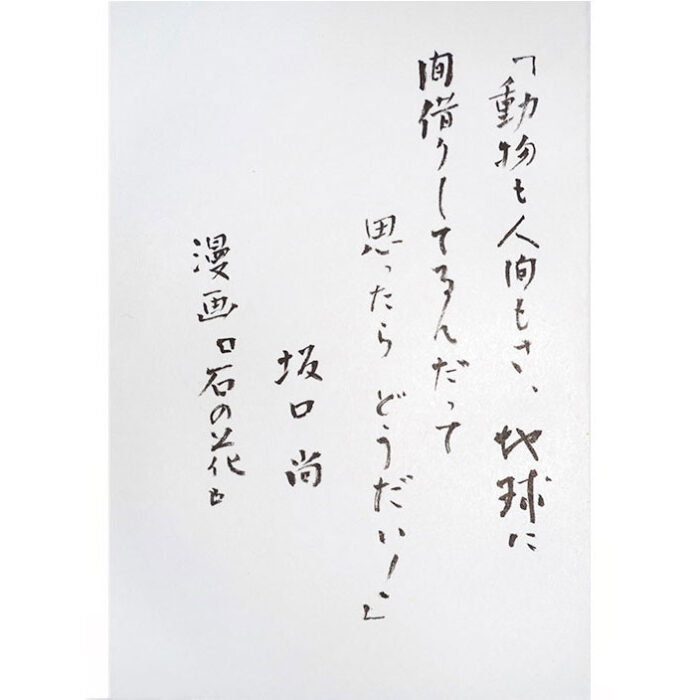 「動物も人間もさ、地球に
間借りしてるんだって
思ったらどうだい!」
坂口尚
漫画『石の花』